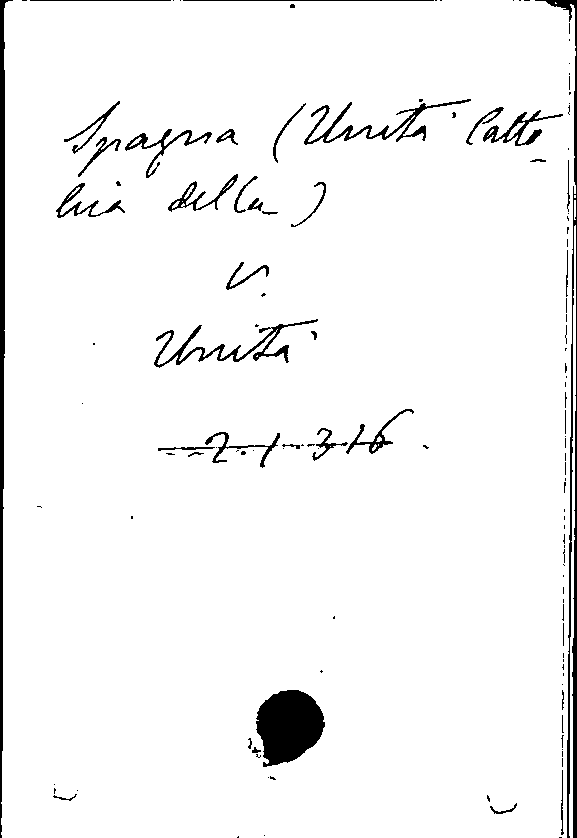 Spagna (Unità Catto
lica della)
v.
Unità
2.1.316